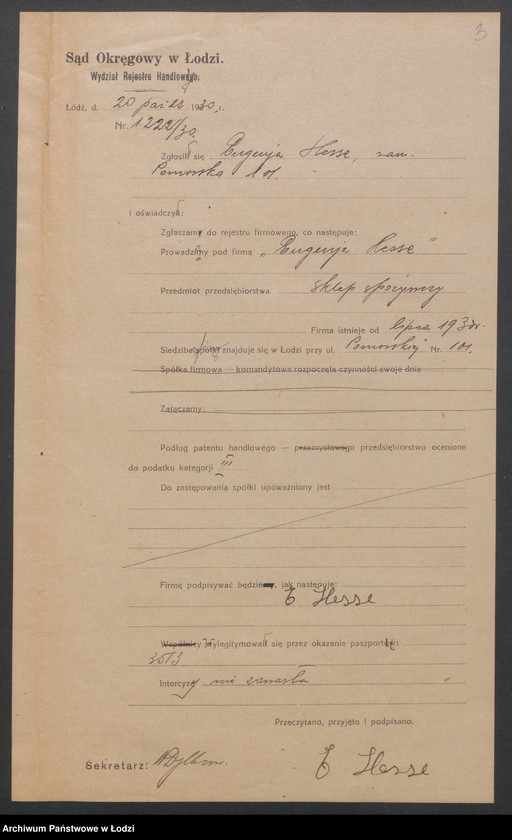 3
Sąd Okręgowy w Łodzi.
Wydział Rejestru Handlowego.
Łódź, d. 20 paźdz 1930 r.
Nr. 1222/30
Zgłosił się Eugenja Hesse, zam.
Pomorska 101.
i oświadczył:
Zgłaszamy do rejestru firmowego, co następuje:
Prowadzimy pod firmą „Eugenja Hesse"
Przedmiot przedsiębiorstwa sklep spożywczy
Firma istnieje od lipca 1930 r.
Siedziba spółki znajduje się w Łodzi przy ul. Pomorskiej Nr. 101.
Spółka firmowa — komandytowa rozpoczęła czynności swoje dnia
Załączamy:
Podług patentu handlowego — przemysłowego przedsiębiorstwo ocenione
do podatku kategorji III
Do zastępowania spółki upoważniony jest
Firmę podpisywać będziemy, jak następuje:
E Hesse
Wspólnicy wylegitymowali się przez okazanie paszportów:
3513
Intercyzy nie zawarła
Przeczytano, przyjęto i podpisano.
Sekretarz:
E Hesse
Archiwum Państwowe w Łodzi